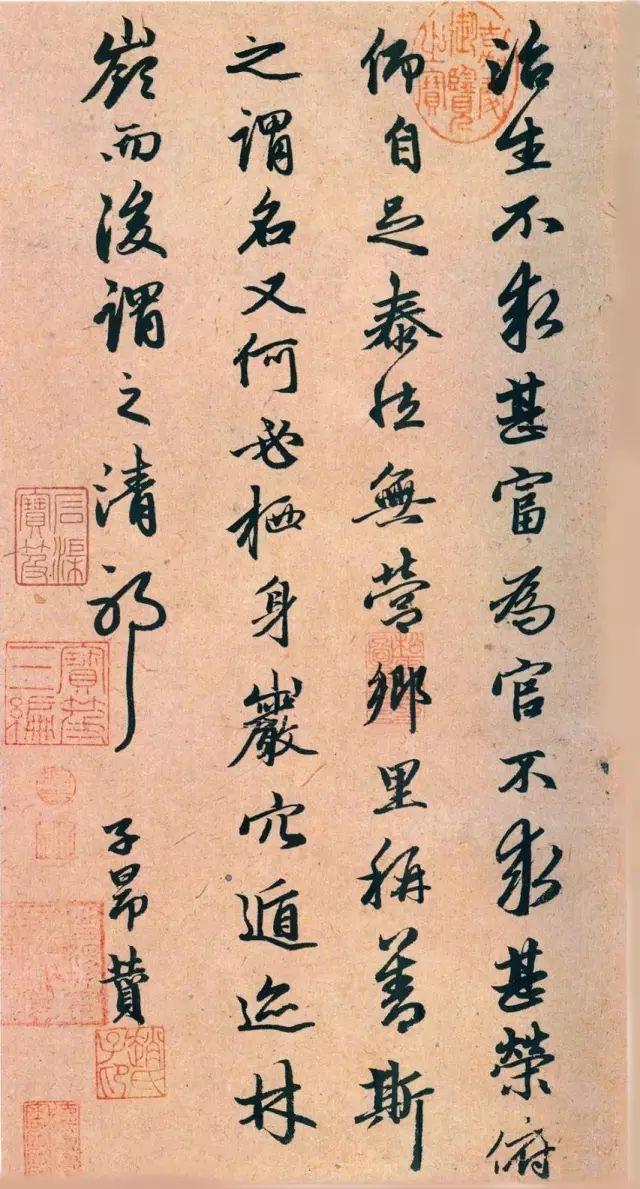 治生不求甚富為官不求甚榮俯
仰自足泰然無營鄉里稱善斯
之謂名又何必栖身巖穴遁迹林
嶺而後謂之清邪
子昂贊
嘉慶御覽之寶
石渠寶笈
寶笈三編
趙氏子昂